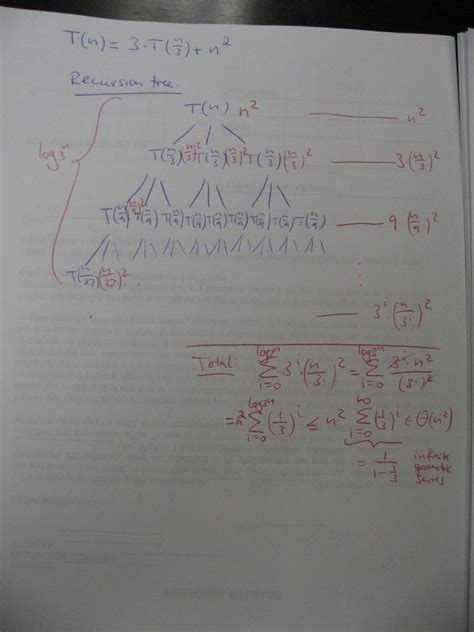 T(n) = 3·T(n/3) + n²
Recursion tree:
T(n) n² —— n²
log₃n
T(n/3)(n/3)² T(n/3)(n/3)² T(n/3)(n/3)² —— 3(n/3)²
T(n/9)(n/9)² T(n/9) T(n/9) T(n/9) T(n/9) T(n/9) T(n/9) T(n/9) —— 9(n/9)²
T(n/27)(n/27)² ...
—— 3ⁱ·(n/3ⁱ)²
Total: ∑_{i=0}^{log₃n} 3ⁱ·(n/3ⁱ)² = ∑_{i=0}^{log₃n} 3ⁱ·n²/(3ⁱ)²
= n² ∑_{i=0}^{log₃n} (1/3)ⁱ ≤ n² ∑_{i=0}^{∞} (1/3)ⁱ ∈ Θ(n²)
= 1/(1 - 1/3) infinite geometric series